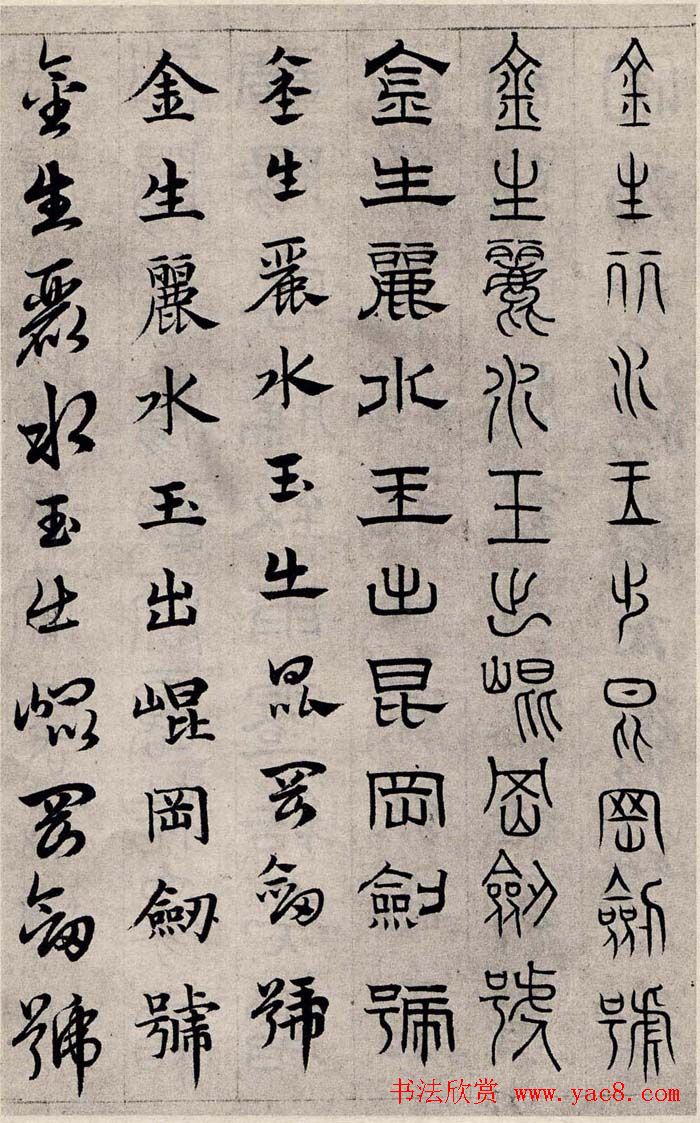 金生丽水玉出昆冈劒號
金生麗水玉出崐岡劒號
金生麗水玉出昆岡劍號
金生麗水玉出昆岡劒號
金生麗水玉出崐岡劒號
金生麗水玉出崐岡劒號
书法欣赏 www.yac8.com